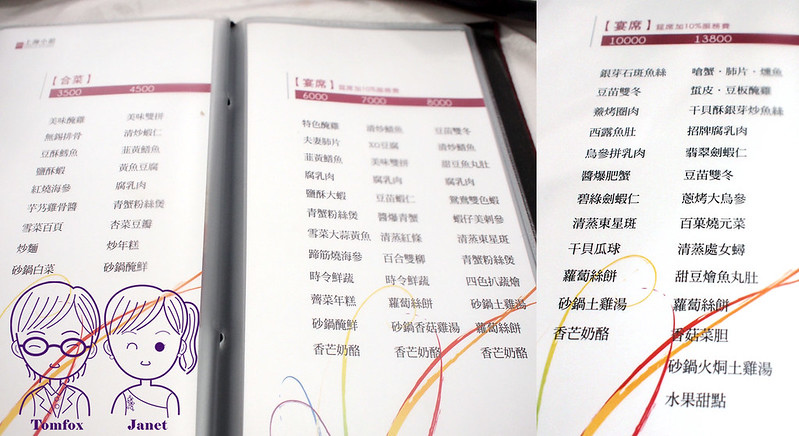 【合菜】
3500
美味醃雞
無錫排骨
豆酥鱈魚
鹽酥蝦
紅燒海參
芋艿雞骨醬
雪菜百頁
炒麵
砂鍋白菜
4500
美味雙拼
清炒蝦仁
韭黃鱔魚
黃魚豆腐
腐乳肉
青蟹粉絲煲
杏菜豆瓣
炒年糕
砂鍋醃鮮
【宴席】筵席加10%服務費
6000
特色醃雞
夫妻肺片
韭黃鱔魚
腐乳肉
鹽酥大蝦
青蟹粉絲煲
雪菜大蒜黃魚
蹄筋燒海參
時令鮮蔬
薺菜年糕
砂鍋醃鮮
香芒奶酪
7000
清炒鱔魚
XO豆腐
美味雙拼
腐乳肉
豆苗蝦仁
醬爆青蟹
清蒸紅條
百合雙柳
時令鮮蔬
蘿蔔絲餅
砂鍋香菇雞湯
香芒奶酪
8000
豆苗雙冬
清炒鱔魚
甜豆魚丸肚
腐乳肉
鴛鴦雙色蝦
蝦仔美刺參
清蒸東星斑
青蟹粉絲煲
四色扒蔬燴
砂鍋土雞湯
蘿蔔絲餅
香芒奶酪
【宴席】筵席加10%服務費
10000
銀芽石斑魚絲
豆苗雙冬
蔥烤圈肉
西露魚肚
烏參拼乳肉
醬爆肥蟹
碧綠劍蝦仁
清蒸東星斑
干貝瓜球
蘿蔔絲餅
砂鍋土雞湯
香芒奶酪
13800
嗆蟹·肺片·燻魚
蜇皮·豆板醃雞
干貝酥銀芽炒魚絲
招牌腐乳肉
翡翠劍蝦仁
豆苗雙冬
蔥烤大烏參
百菓燒元菜
清蒸處女蟳
甜豆燴魚丸肚
蘿蔔絲餅
香菇菜胆
砂鍋火焗土雞湯
水果甜點
Tomfox
Janet